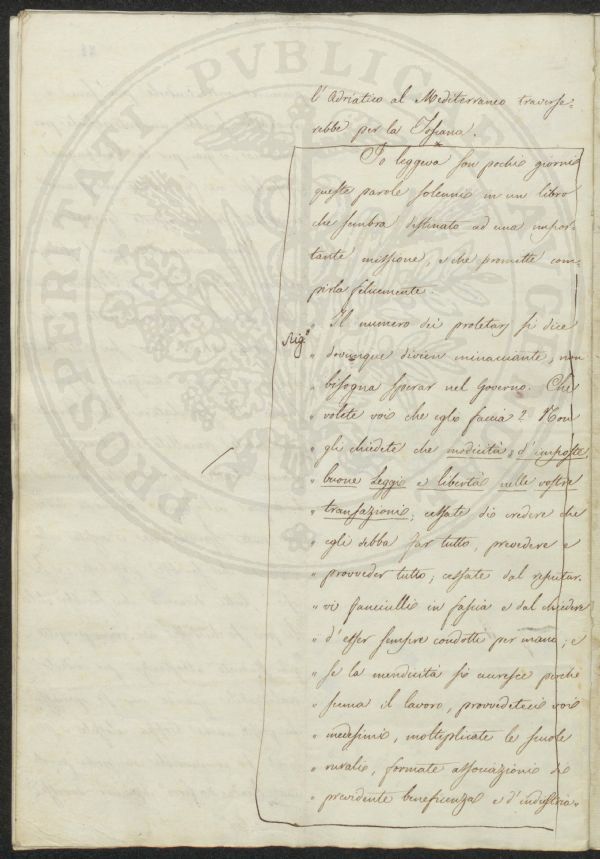 l'Adriatico al Mediterraneo traverse-
rebbe per la Toscana.
Io leggeva son pochi giorni
queste parole solenni in un libro
che sembra destinato ad una impor-
tante missione, e che promette com-
pirla felicemente.
" Il numero dei proletarj si dice
" dovunque divien minacciante, non
" bisogna sperar nel Governo. Che
" volete voi che egli faccia? Non
" gli chiedete che modicità d'imposte
" buone Leggi e libertà nelle vostre
" transazioni; cessate di credere che
" egli debba far tutto, prevedere e
" provveder tutto; cessate dal reputar-
" vi fanciulli in fascia e dal chiedere
" d'esser sempre condotti per mano; e
" se la mendicità si accresce perchè
" scema il lavoro, provvedeteci voi
" medesimi, moltiplicate le scuole
" rurali, formate associazioni di
" previdente beneficenza e d'industria.
PROSPERITATI PVBLICAE